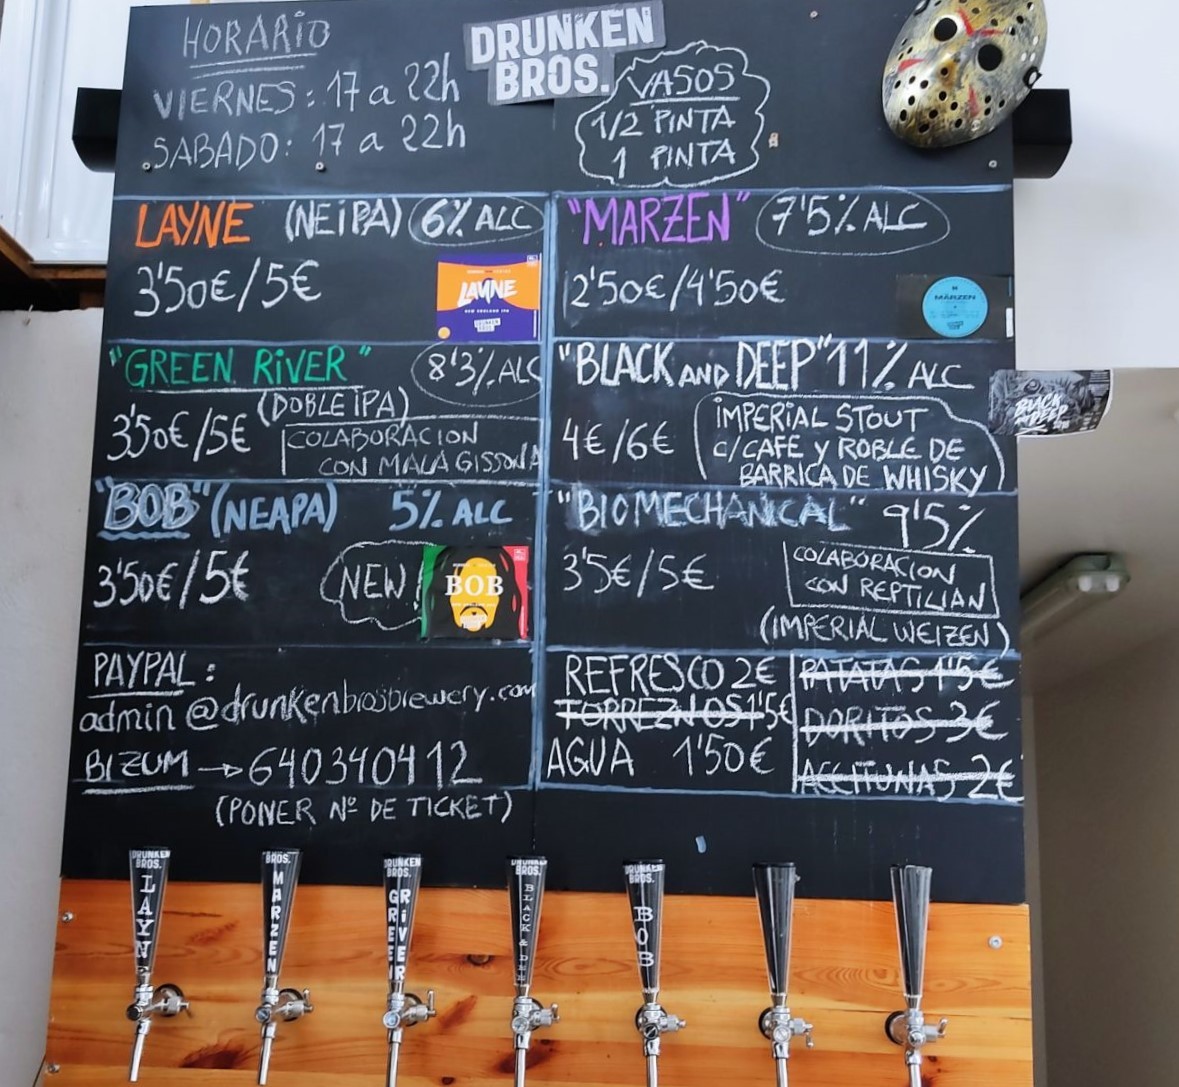 HORARIO
VIERNES: 17 a 22h
SABADO: 17 a 22h
DRUNKEN
BROS.
VASOS
1/2 PINTA
1 PINTA
LAYNE (NEIPA) 6% ALC
3'50€/5€
LAYNE
NEW ENGLAND IPA
DRUNKEN
BROS.
"MARZEN" 7'5% ALC
2'50€/4'50€
MÄRZEN
"GREEN RIVER" 8'3% ALC
(DOBLE IPA)
3'50€/5€
COLABORACION
CON MALA GISSONA
"BLACK AND DEEP" 11% ALC
4€/6€
IMPERIAL STOUT
C/CAFE Y ROBLE DE
BARRICA DE WHISKY
BLACK
DEEP
"BOB" (NEAPA) 5% ALC
3'50€/5€
NEW!
BOB
"BIOMECHANICAL" 9'5%
3'5€/5€
COLABORACION
CON REPTILIAN
(IMPERIAL WEIZEN)
PAYPAL:
admin@drunkenbrosbrewery.com
BIZUM → 640340412
(PONER Nº DE TICKET)
REFRESCO 2€
TORREZNOS 1'5€
AGUA 1'50€
PATATAS 1'5€
DORITOS 3€
ACEITUNAS 2€
DRUNKEN
BROS.
LAYNE
BROS.
MARZEN
DRUNKEN
BROS.
GREEN
RIVER
DRUNKEN
BROS.
BLACK & DEE
DRUNKEN
BROS.
BOB